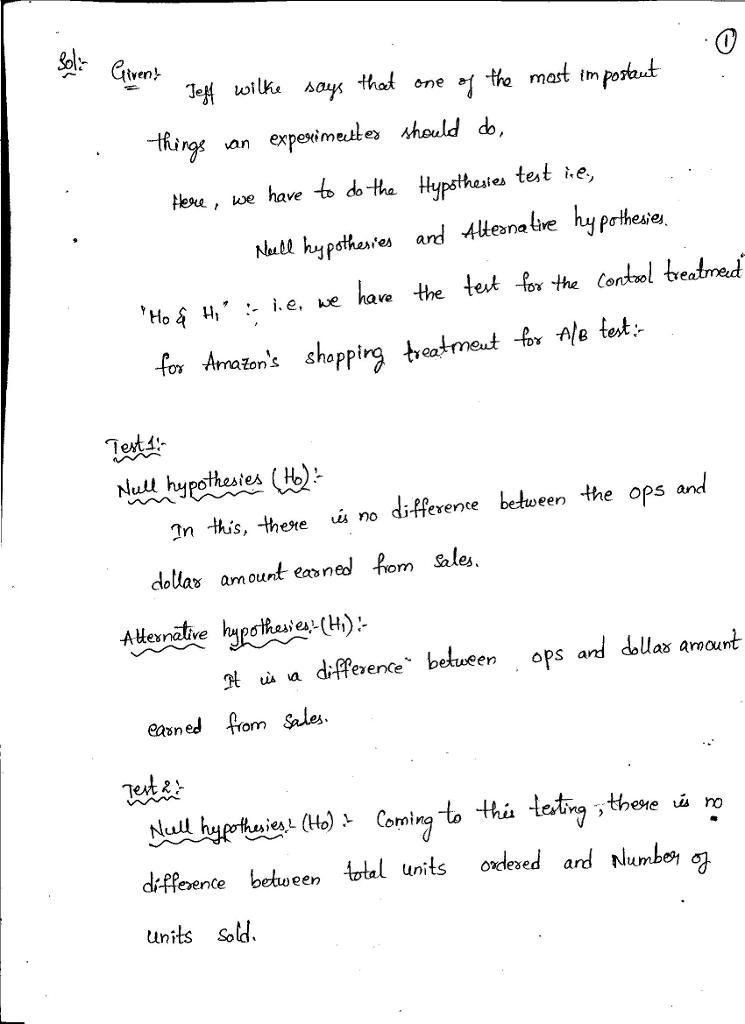 ①
Sol:- Given:-
Jeff wilke says that one of the most important
things an experimenter should do,
Here, we have to do the Hypothesies test i.e.,
Null hypothesies and Alternative hypothesies.
"Ho & H1" :- i.e, we have the test for the Control treatment
for Amazon's shopping treatment for A/B test:-
Test 1:-
Null hypothesies (Ho):-
In this, there is no difference between the ops and
dollar amount earned from sales.
Alternative hypothesies:- (H1):-
It is a difference between ops and dollar amount
earned from sales.
Test 2:-
Null hypothesies:- (Ho) :- Coming to this testing, there is no
difference between total units ordered and Number of
units sold.